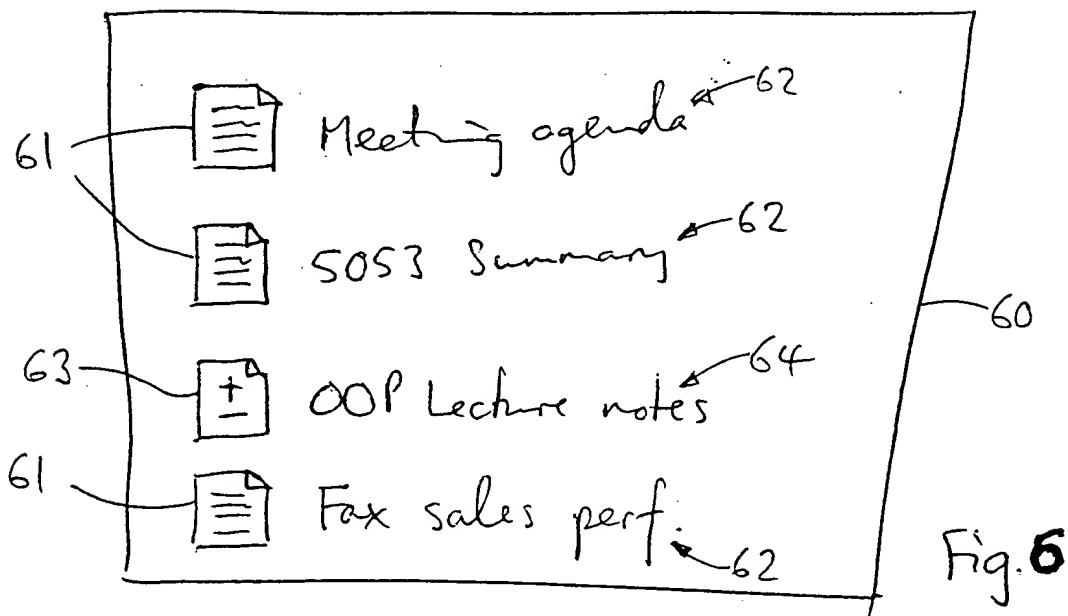 61
Meeting agenda 62
5053 Summary 62
60
63 + - OOP Lecture notes 64
61 Fax sales perf. 62
Fig. 6